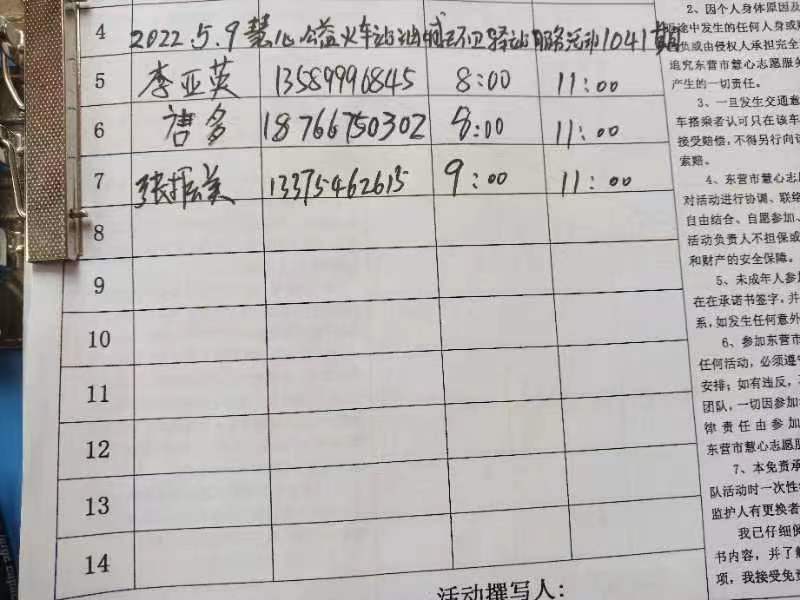 4 2022.5.9慧心公益火车站油城环卫驿站服务活动1041期
5 李亚英 13589996845 8:00 11:00
6 唐多 18766750302 8:00 11:00
7 张振美 13375462615 9:00 11:00
8
9
10
11
12
13
14
活动撰写人:
2、因个人身体原因及
途中发生的任何人身或
负或由侵权人承担完全
追究东营市慧心志愿服务
产生的一切责任。
3、一旦发生交通意
车搭乘者认可只在该车
接受赔偿,不得另行向
索赔。
4、东营市慧心志愿
对活动进行协调、联络
自由结合、自愿参加、
活动负责人不担保或
和财产的安全保障。
5、未成年人参加
在在承诺书签字,并
系,如发生任何意外
6、参加东营市
任何活动,必须遵
安排;如有违反,
团队,一切因参加
律责任由参加
东营市慧心志愿服
7、本免责承
队活动时一次性
监护人有更换者
我已仔细阅
书内容,并了解
项,我接受免责